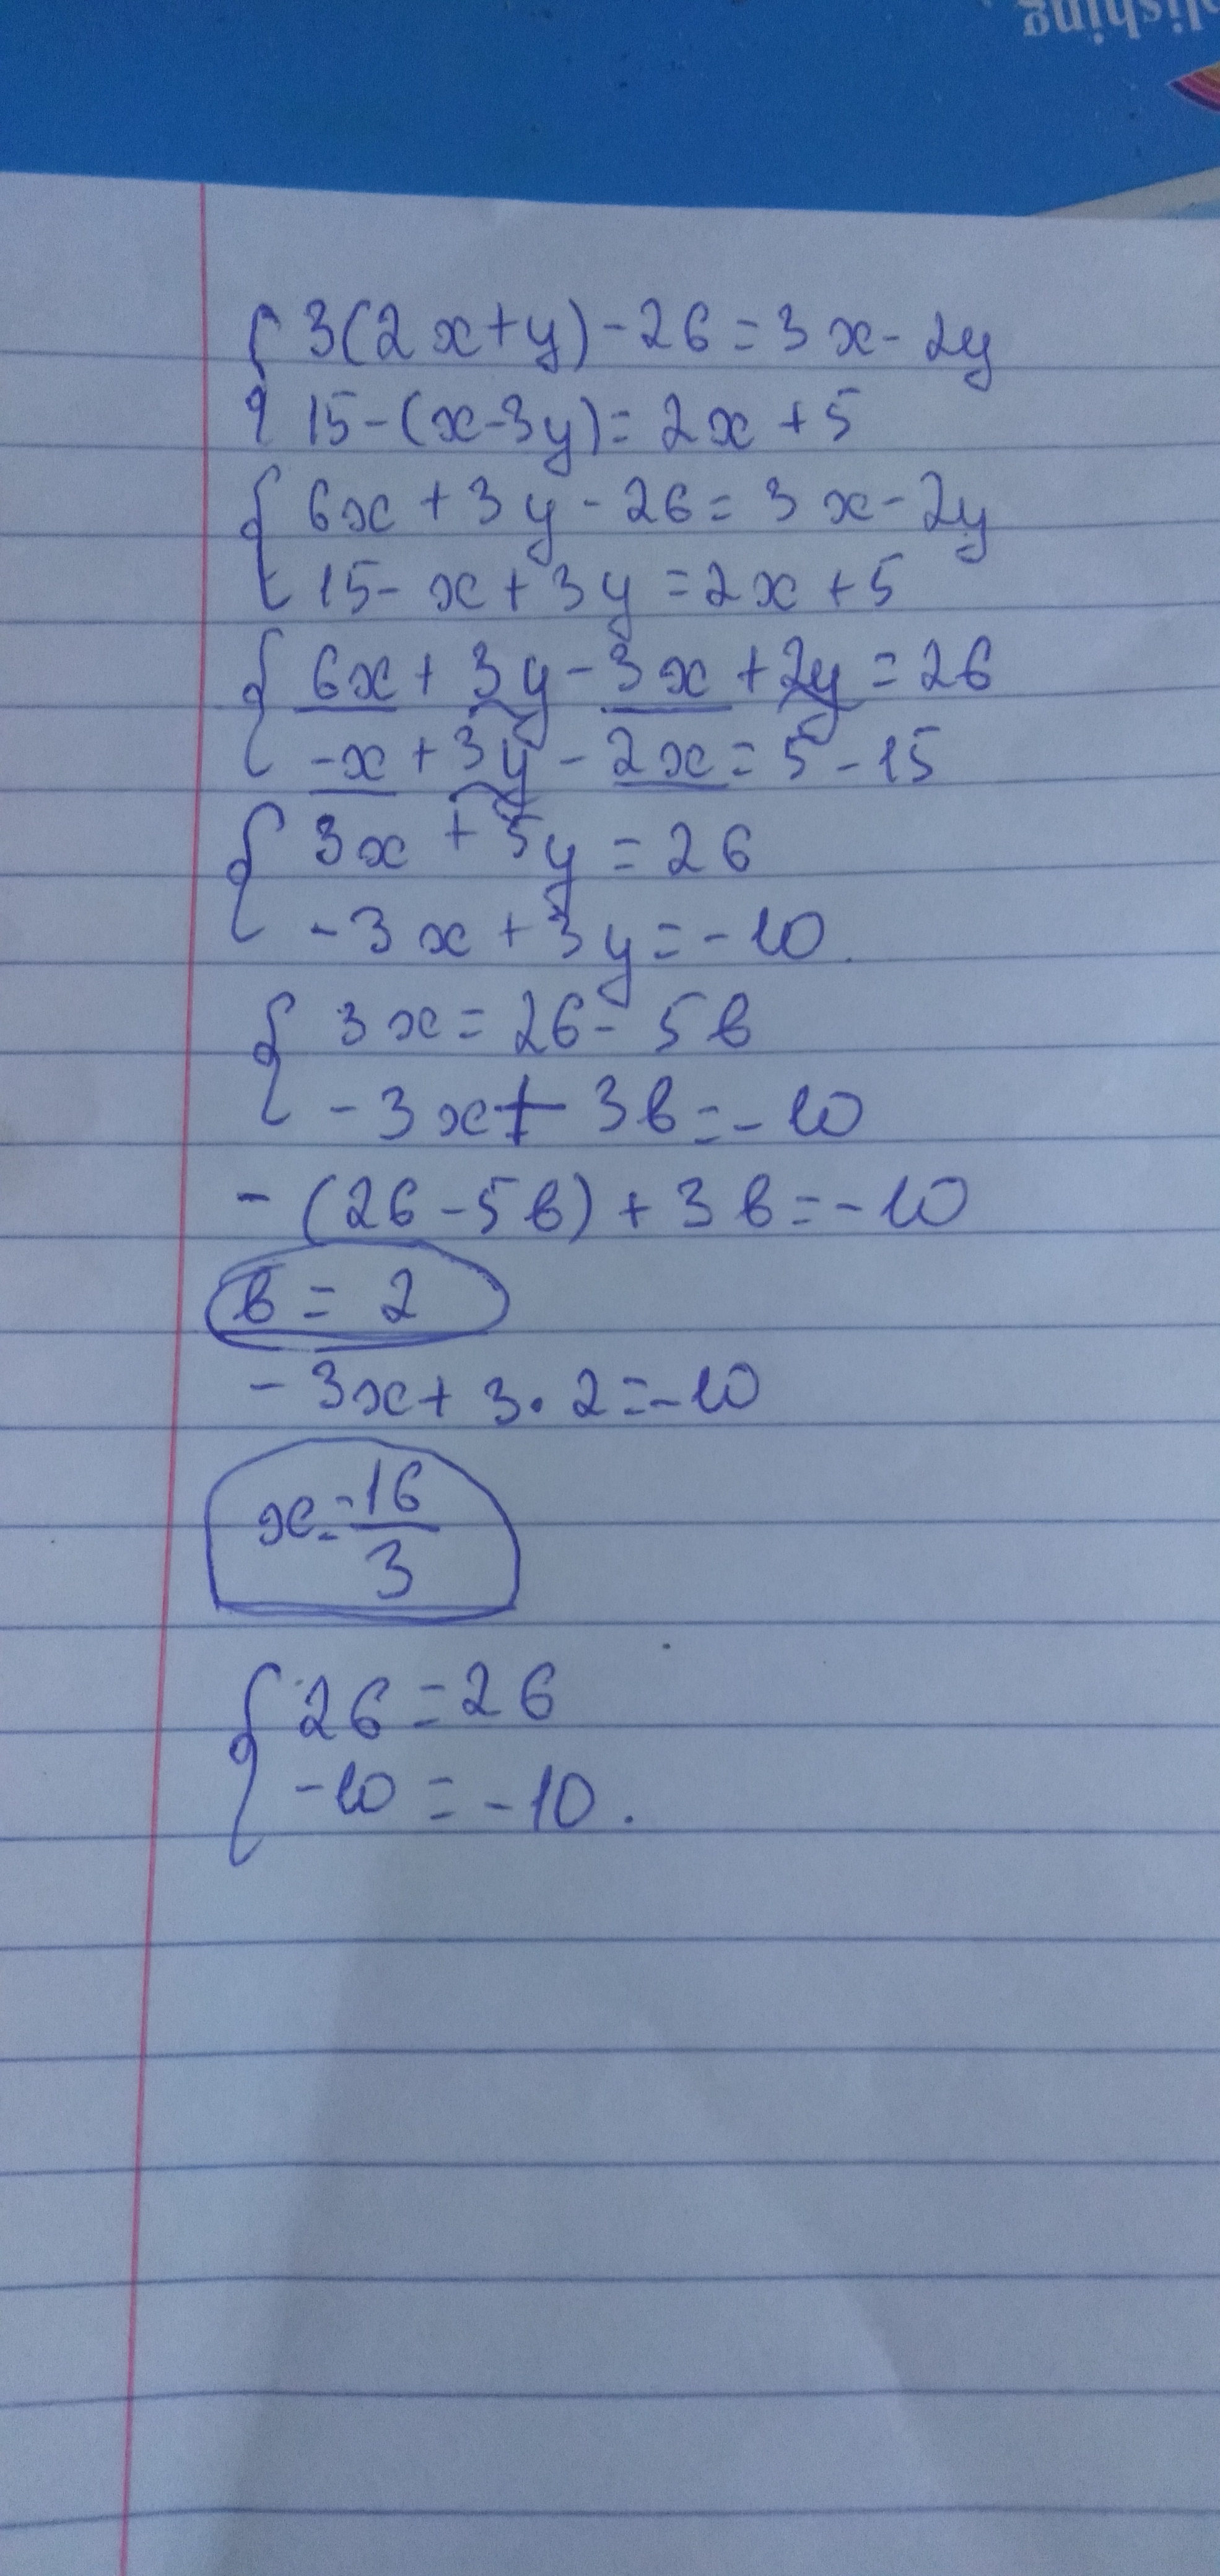 lishing
3(2x+y)-26=3x-2y
15-(x-3y)=2x+5
6x+3y-26=3x-2y
15-x+3y=2x+5
6x+3y-3x+2y=26
-x+3y-2x=5-15
3x+5y=26
-3x+3y=-10.
3x=26-5в
-3x+3в=-10
-(26-5в)+3в=-10
в=2
-3x+3·2=-10
x=-16/3
26=26
-10=-10.